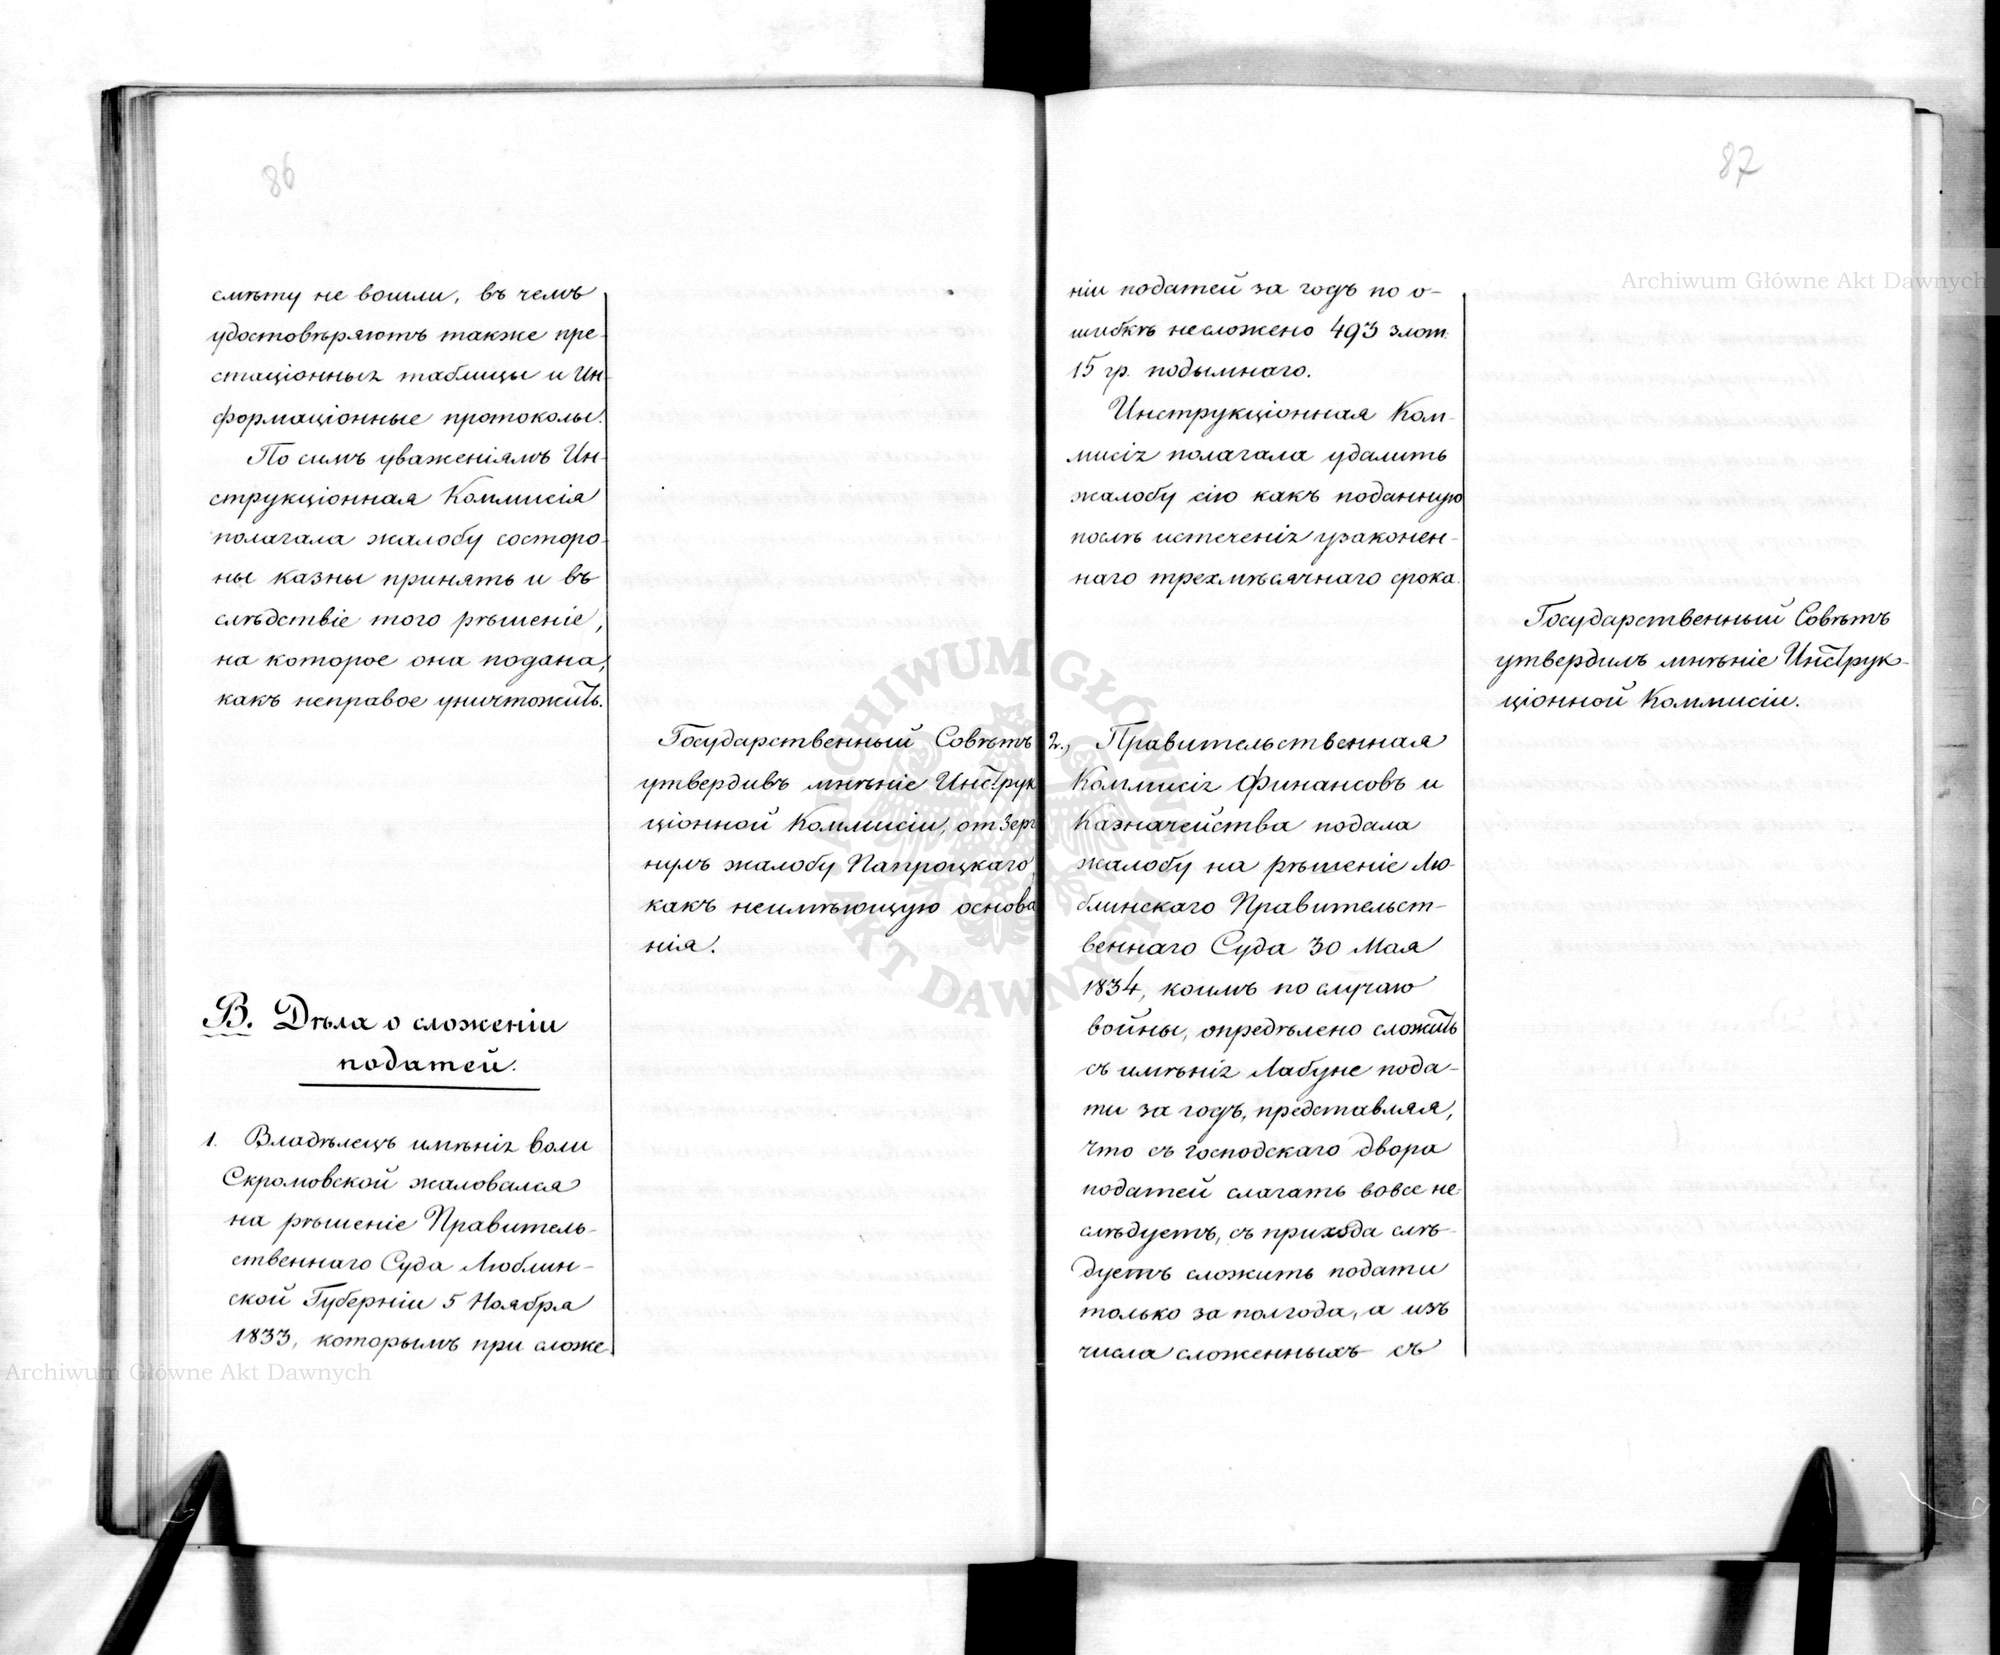 86
смѣту не вошли, въ чемъ
удостовѣряютъ также пре-
стаціонныя таблицы и Ин-
формаціонные протоколы.
По симъ уваженіямъ Ин-
струкціонная Коммисія
полагала жалобу состоро-
ны казны принять и въ
слѣдствіе того рѣшеніе,
на которое она подана,
какъ неправое уничтожить.
Государственный Совѣтъ
утвердивъ мнѣніе Инструк
ціонной Коммисіи, отверг
нулъ жалобу Папроцкаго,
какъ неимѣющую основа
нія.
В. Дѣла о сложеніи
податей.
1. Владѣлецъ имѣнія Воли
Скромовской жаловался
на рѣшеніе Правитель-
ственнаго Суда Люблин-
ской Губерніи 5 Ноября
1833, которымъ при сложе
87
ніи податей за годъ по о-
шибкѣ несложено 493 злот.
15 гр. подымнаго.
Инструкціонная Ком-
мисія полагала удалить
жалобу сію какъ поданную
послѣ истеченія узаконен-
наго трехмѣсячнаго срока.
Государственный Совѣтъ
утвердилъ мнѣніе Инструк-
ціонной Коммисіи.
2., Правительственная
Коммисія Финансовъ и
Казначейства подала
жалобу на рѣшеніе Лю-
блинскаго Правительст-
веннаго Суда 30 Мая
1834, коимъ по случаю
войны, опредѣлено сложить
съ имѣнія Лабуне пода-
ти за годъ, представляя,
что съ господскаго двора
податей слагать вовсе не
слѣдуетъ, съ прихода слѣ-
дуетъ сложить подати
только за полгода, а изъ
числа сложенныхъ съ
Archiwum Główne Akt Dawnych
Archiwum Główne Akt Dawnych
ARCHIWUM GŁÓWNE
AKT DAWNYCH